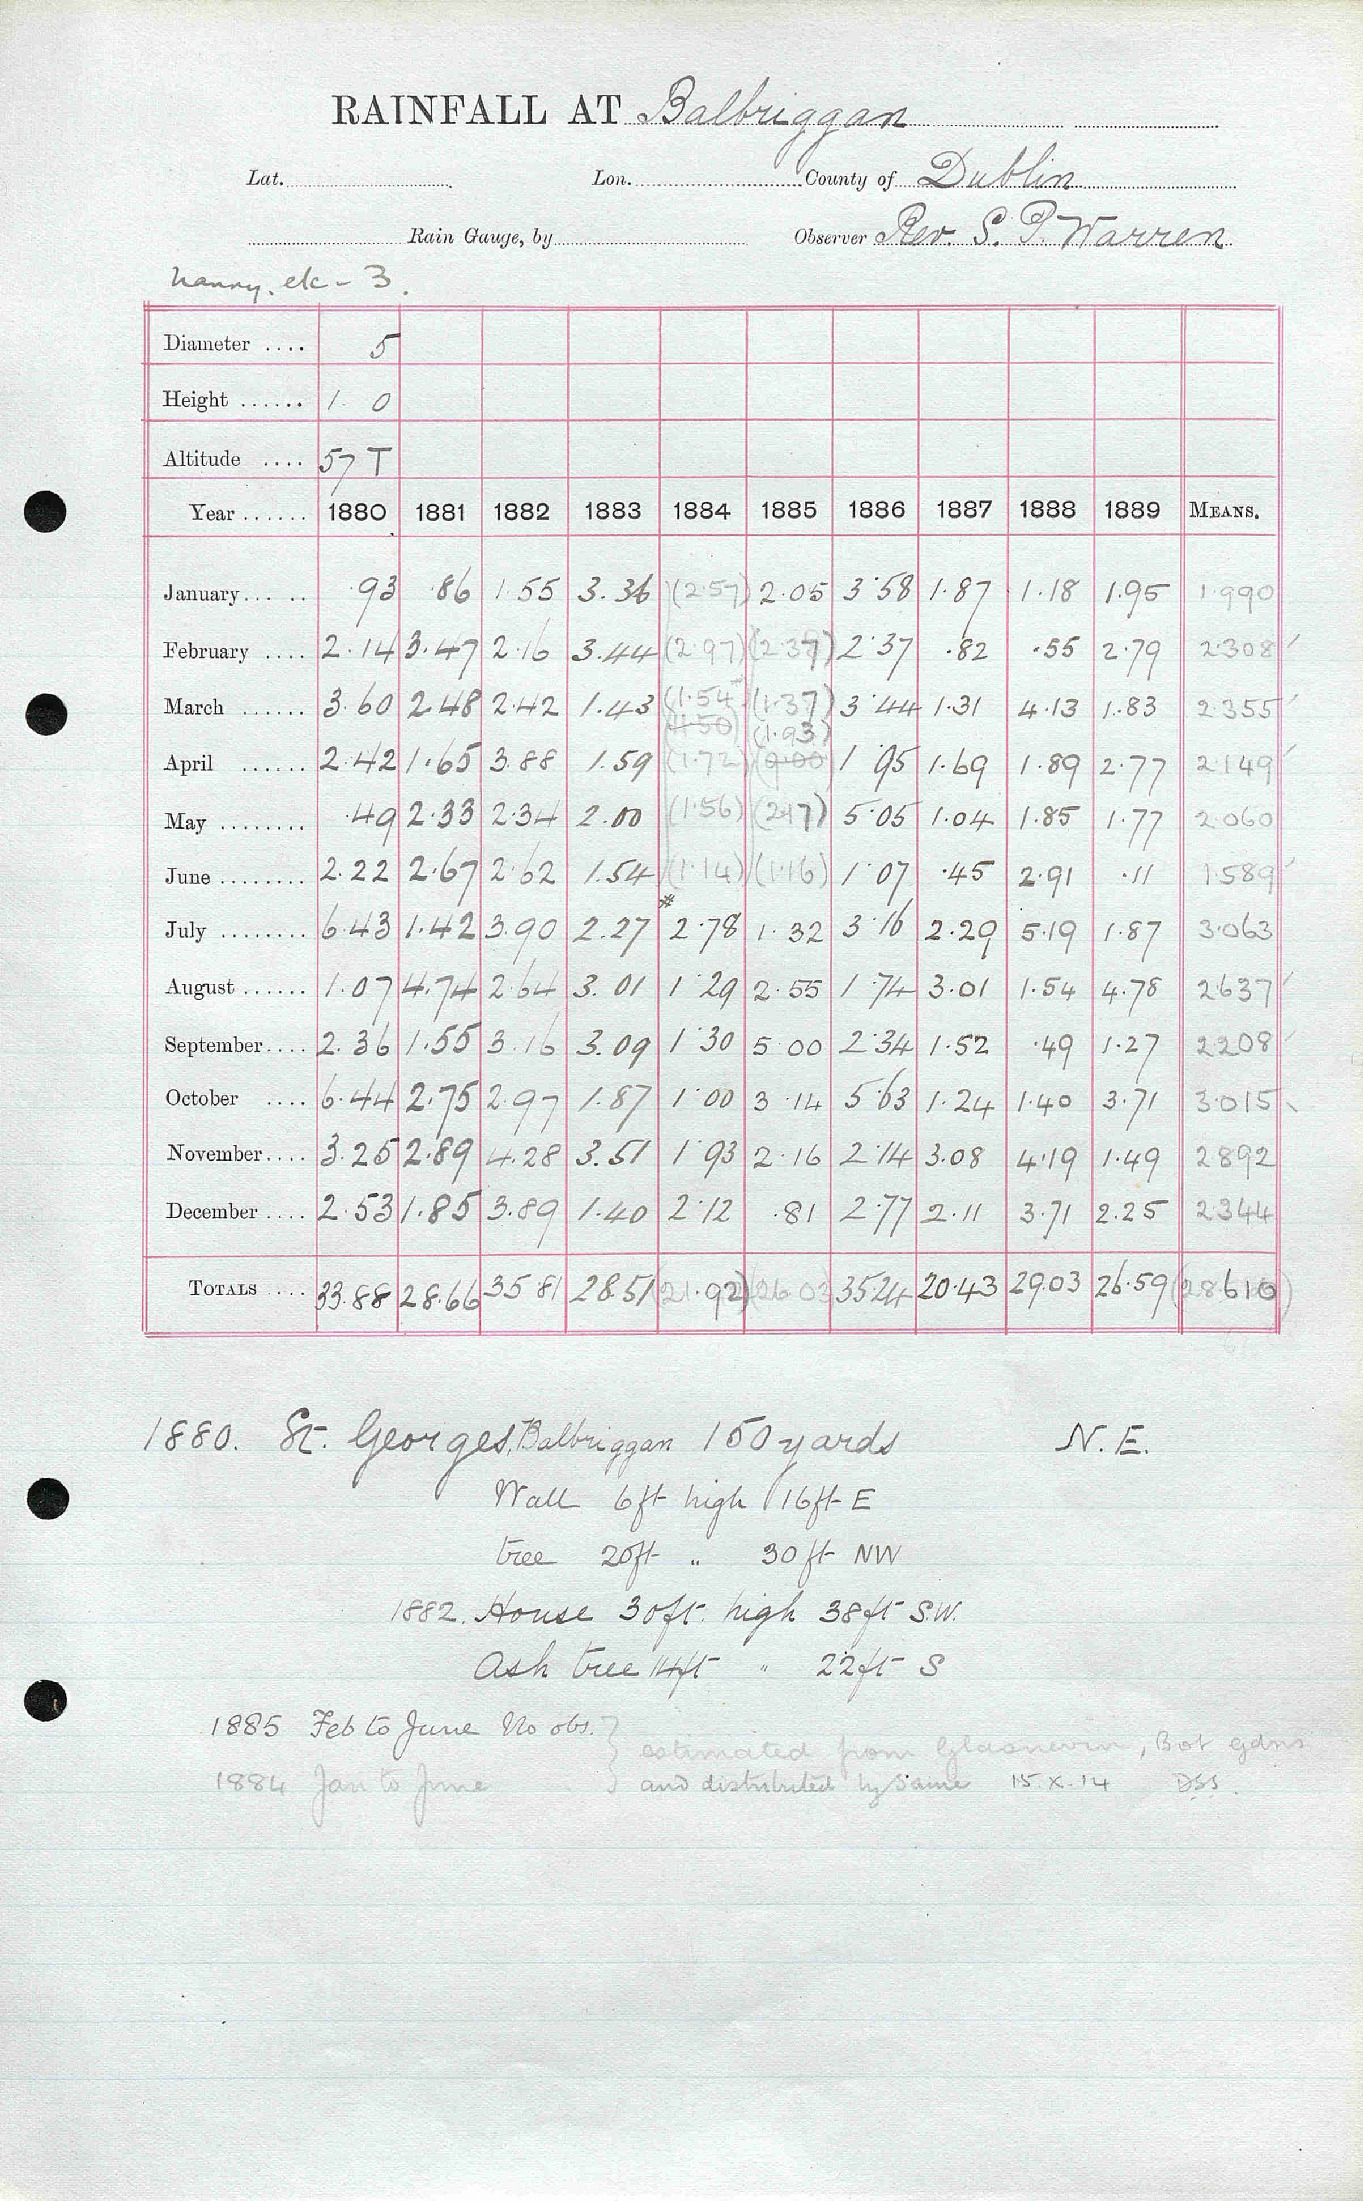 RAINFALL AT Balbriggan
Lat. Lon. County of Dublin
Rain Gauge, by Observer Rev. S. P. Warren
Nanny. etc - 3.
Diameter .... 5
Height ...... 1 0
Altitude .... 57 T
Year ...... 1880 1881 1882 1883 1884 1885 1886 1887 1888 1889 MEANS.
January ... .. .93 .86 1.55 3.36 (2.57) 2.05 3.58 1.87 1.18 1.95 1.990
February .... 2.14 3.47 2.16 3.44 (2.97) (2.37) 2.37 .82 .55 2.79 2.308
March ...... 3.60 2.48 2.42 1.43 (1.54) (1.37) 3.44 1.31 4.13 1.83 2.355
4.50 (1.93)
April ...... 2.42 1.65 3.88 1.59 (1.72) (9.00) 1.95 1.69 1.89 2.77 2.149
May ........ .49 2.33 2.34 2.00 (1.56) (2.17) 5.05 1.04 1.85 1.77 2.060
June ........ 2.22 2.67 2.62 1.54 (1.14) (1.16) 1.07 .45 2.91 .11 1.589
July ........ 6.43 1.42 3.90 2.27 # 2.78 1.32 3.16 2.29 5.19 1.87 3.063
August ...... 1.07 4.74 2.64 3.01 1.29 2.55 1.74 3.01 1.54 4.78 2.637
September .... 2.36 1.55 3.16 3.09 1.30 5.00 2.34 1.52 .49 1.27 2.208
October .... 6.44 2.75 2.97 1.87 1.00 3.14 5.63 1.24 1.40 3.71 3.015
November .... 3.25 2.89 4.28 3.51 1.93 2.16 2.14 3.08 4.19 1.49 2.892
December .... 2.53 1.85 3.89 1.40 2.12 .81 2.77 2.11 3.71 2.25 2.344
TOTALS .... 33.88 28.66 35.81 28.51 (21.92) (26.03) 35.24 20.43 29.03 26.59 (28.610)
1880. St. Georges, Balbriggan 150 yards N.E.
Wall 6ft high 16ft E
tree 20ft " 30ft NW
1882. House 30ft. high 38ft S.W.
Ash tree 14ft " 22ft S
1885 Feb to June No obs. }
estimated from Glasnevin, Bot gdns
1884 Jan to June } and distributed by Same 15.X.14 DSS.